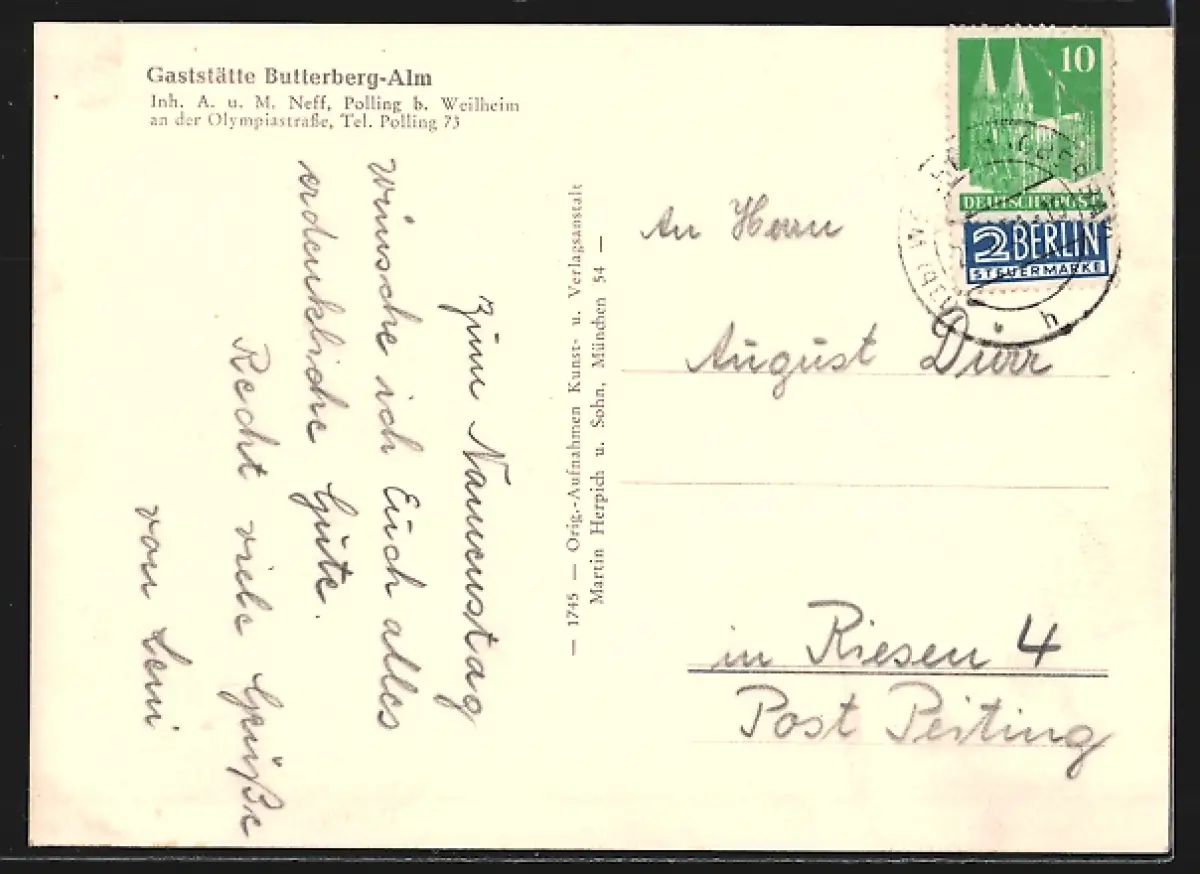 Gaststätte Butterberg-Alm
Inh. A. u. M. Neff, Polling b. Weilheim
an der Olympiastraße, Tel. Polling 73
zum Namenstag
wünsche ich Euch alles
erdenkliche Gute.
Recht viele Grüße
von Leni
— 1745 — Orig.-Aufnahmen Kunst- u. Verlagsanstalt
Martin Herpich u. Sohn, München 54 —
10
DEUTSCHE POST
2 BERLIN
STEUERMARKE
An Herrn
August Dürr
in Riesen 4
Post Peiting